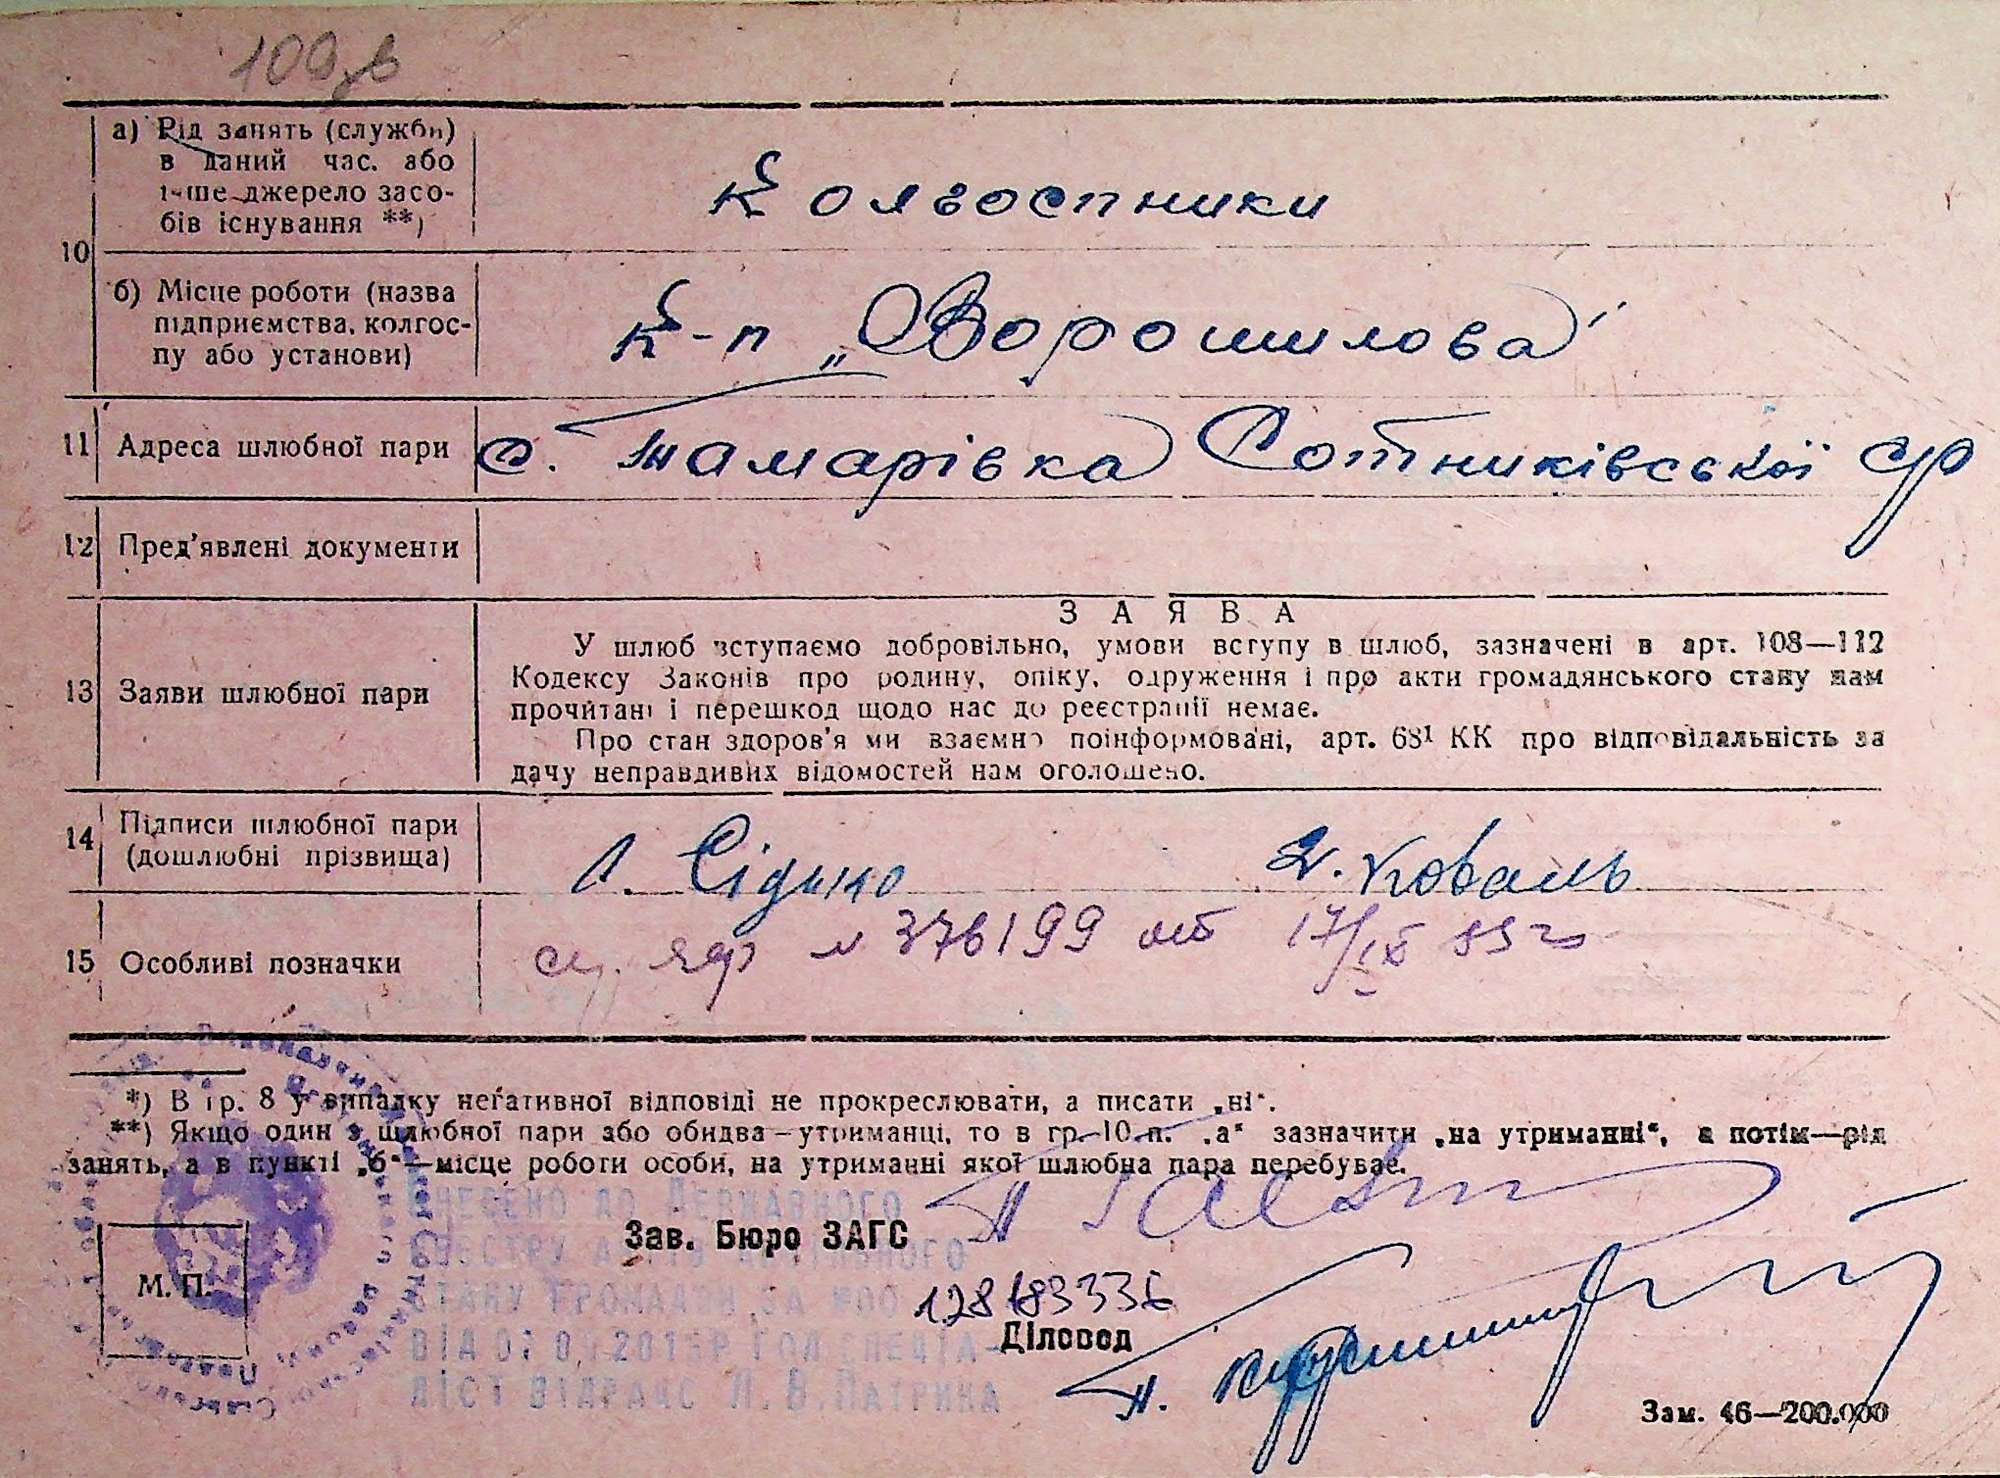 109 зв
а) Рід занять (служби)
в даний час. або
інше джерело засо-
бів існування **)
Колгоспники
10
б) Місце роботи (назва
підприємства, колгос-
пу або установи)
К-п „Ворошилова"
11 Адреса шлюбної пари с. Тамарівка Сотниківської ср
12 Пред'явлені документи
ЗАЯВА
13 Заяви шлюбної пари
У шлюб вступаємо добровільно, умови вступу в шлюб, зазначені в арт. 108—112
Кодексу Законів про родину, опіку, одруження і про акти громадянського стану нам
прочитані і перешкод щодо нас до реєстрації немає.
Про стан здоров'я ми взаємно поінформовані, арт. 68¹ КК про відповідальність за
дачу неправдивих відомостей нам оголошено.
14 Підписи шлюбної пари
(дошлюбні прізвища)
Коваль
15 Особливі позначки
№ 376199 от 17/IX
*) В гр. 8 у випадку негативної відповіді не прокреслювати, а писати „ні".
**) Якщо один з шлюбної пари або обидва—утриманці, то в гр. 10 п. „а" зазначити „на утриманні", а потім—рід
занять, а в пункті „б"—місце роботи особи, на утриманні якої шлюбна пара перебуває.
Внесено до Державного
Зав. Бюро ЗАГС
реєстру актів цивільного
стану громадян за №00
Діловод
ліст відрацс Л. В. Патрина
М. П.
Зам. 46—200.000